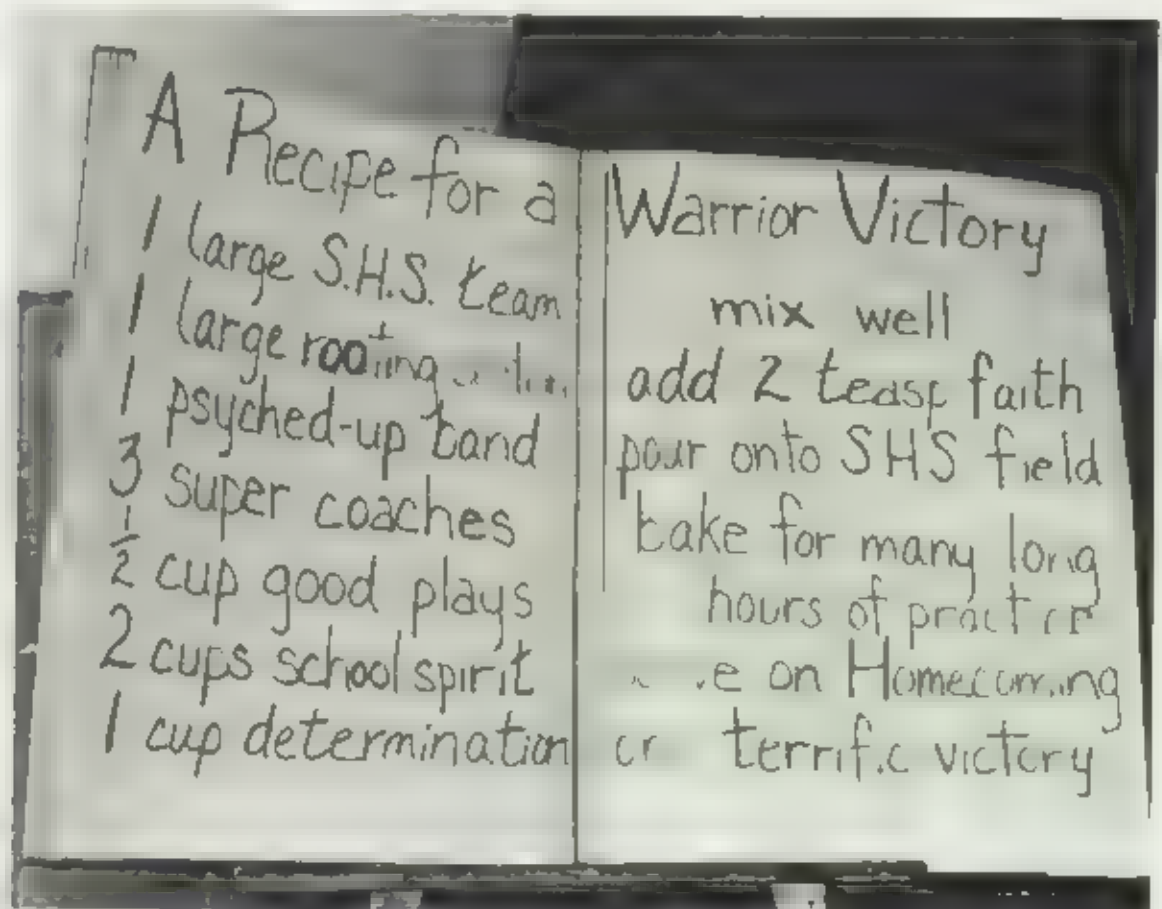 A Recipe for a
1 large S.H.S. team
1 large rooting
1 psyched-up band
3 super coaches
1/2 cup good plays
2 cups school spirit
1 cup determination
Warrior Victory
mix well
add 2 teasp faith
pour onto SHS field
bake for many long
hours of practice
on Homecoming
terrific victory